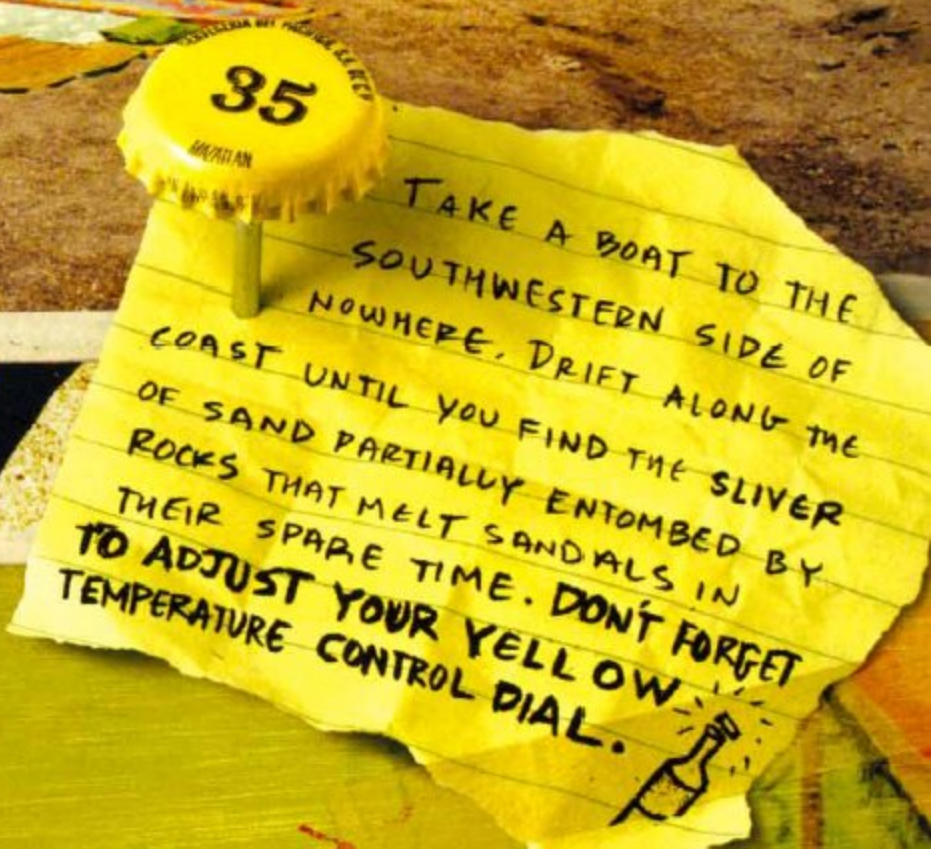 CERVECERIA DEL PACIFICO, S.A. DE C.V.
35
MAZATLAN
TAKE A BOAT TO THE
SOUTHWESTERN SIDE OF
NOWHERE. DRIFT ALONG THE
COAST UNTIL YOU FIND THE SLIVER
OF SAND PARTIALLY ENTOMBED BY
ROCKS THAT MELT SANDALS IN
THEIR SPARE TIME. DON'T FORGET
TO ADJUST YOUR YELLOW
TEMPERATURE CONTROL DIAL.